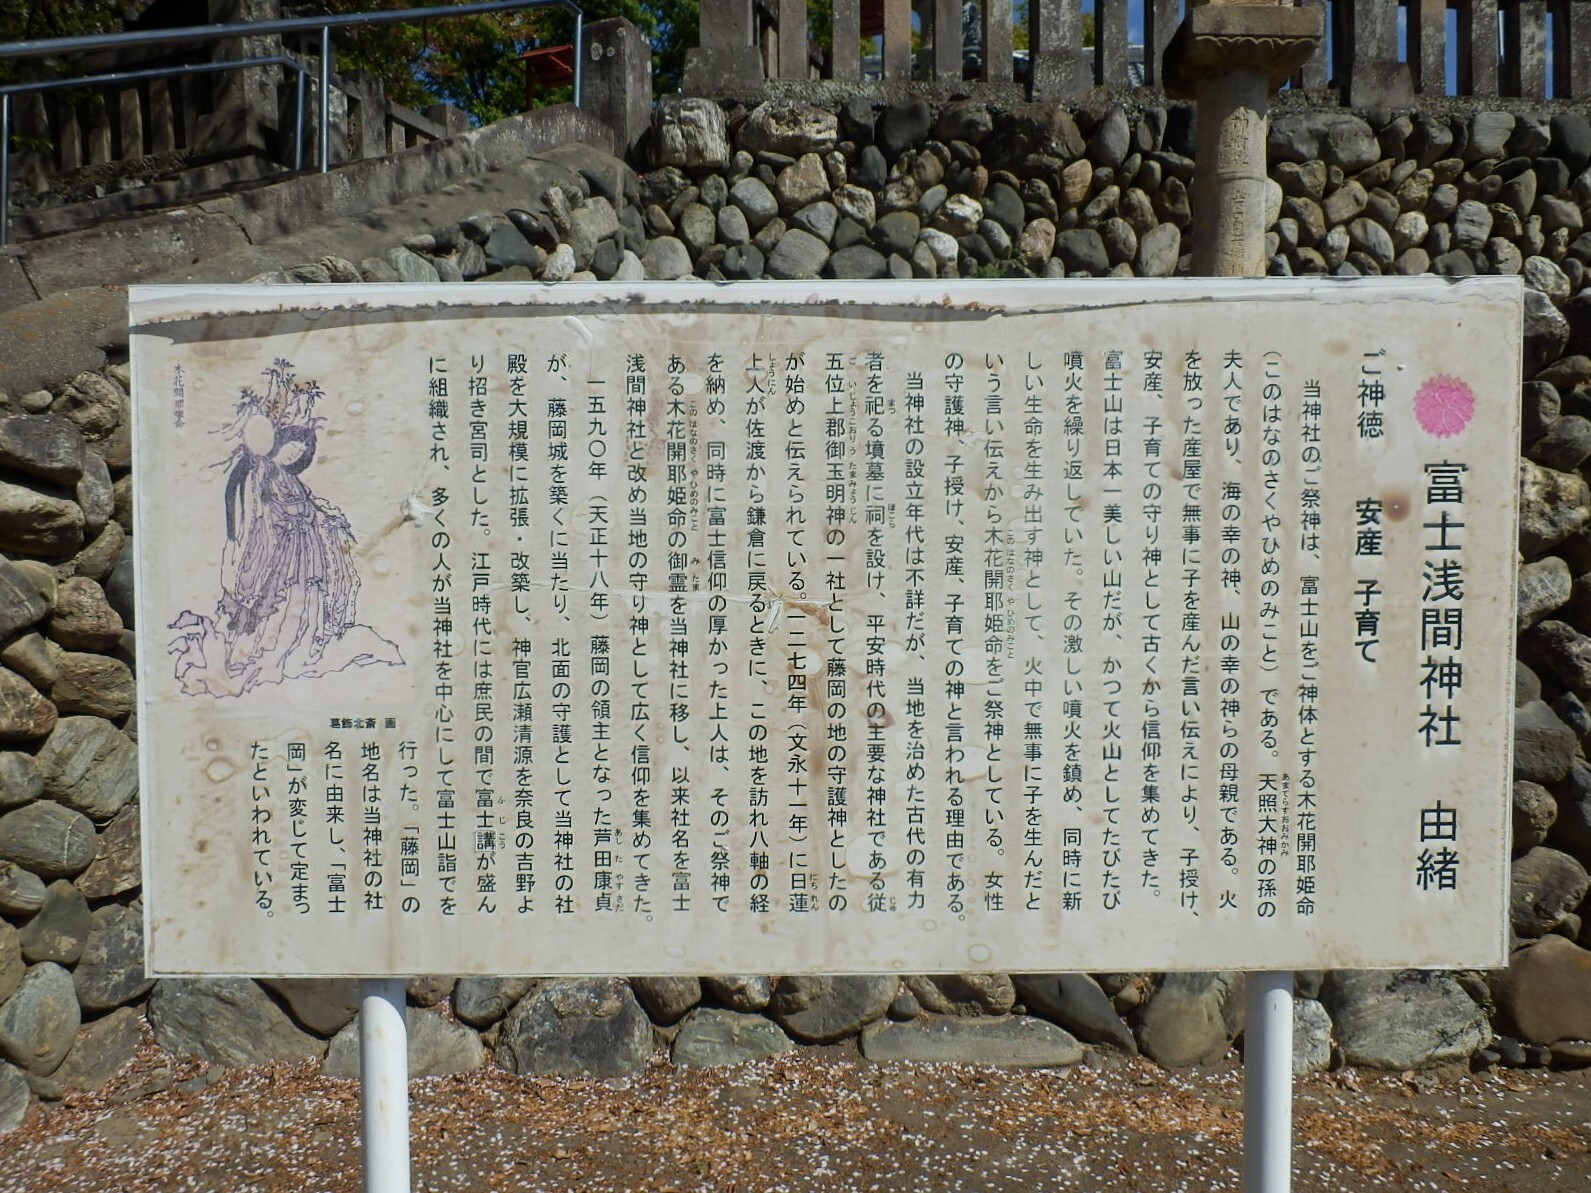 富士浅間神社　由緒
ご神徳　安産　子育て
当神社のご祭神は、富士山をご神体とする木花開耶姫命
（このはなのさくやひめのみこと）である。天照大神の孫の
あまてらすおおみかみ
夫人であり、海の幸の神、山の幸の神らの母親である。火
を放った産屋で無事に子を産んだ言い伝えにより、子授け、
安産、子育ての守り神として古くから信仰を集めてきた。
富士山は日本一美しい山だが、かつて火山としてたびたび
噴火を繰り返していた。その激しい噴火を鎮め、同時に新
しい生命を生み出す神として、火中で無事に子を生んだと
いう言い伝えから木花開耶姫命をご祭神としている。女性
このはなのさくやひめのみこと
の守護神、子授け、安産、子育ての神と言われる理由である。
当神社の設立年代は不詳だが、当地を治めた古代の有力
者を祀る墳墓に祠を設け、平安時代の主要な神社である従
まつ　ほこら　じゅ
五位上郡御玉明神の一社として藤岡の地の守護神としたの
ごいじょうこおりうたまみょうじん
が始めと伝えられている。一二七四年（文永十一年）に日蓮
にちれん
上人が佐渡から鎌倉に戻るときに、この地を訪れ八軸の経
しょうにん
を納め、同時に富士信仰の厚かった上人は、そのご祭神で
ある木花開耶姫命の御霊を当神社に移し、以来社名を富士
このはなのさくやひめのみこと　みたま
浅間神社と改め当地の守り神として広く信仰を集めてきた。
一五九〇年（天正十八年）藤岡の領主となった芦田康貞
あしたやすさだ
が、藤岡城を築くに当たり、北面の守護として当神社の社
殿を大規模に拡張・改築し、神官広瀬清源を奈良の吉野よ
り招き宮司とした。江戸時代には庶民の間で富士講が盛ん
ふじこう
に組織され、多くの人が当神社を中心にして富士山詣でを
行った。「藤岡」の
地名は当神社の社
名に由来し、「富士
岡」が変じて定まっ
たといわれている。
葛飾北斎　画